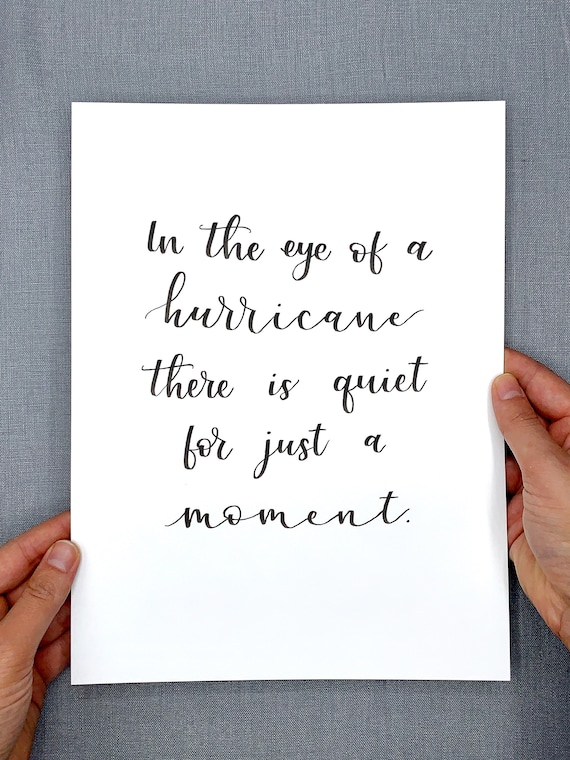 In the eye of a
hurricane
there is quiet
for just a
moment.